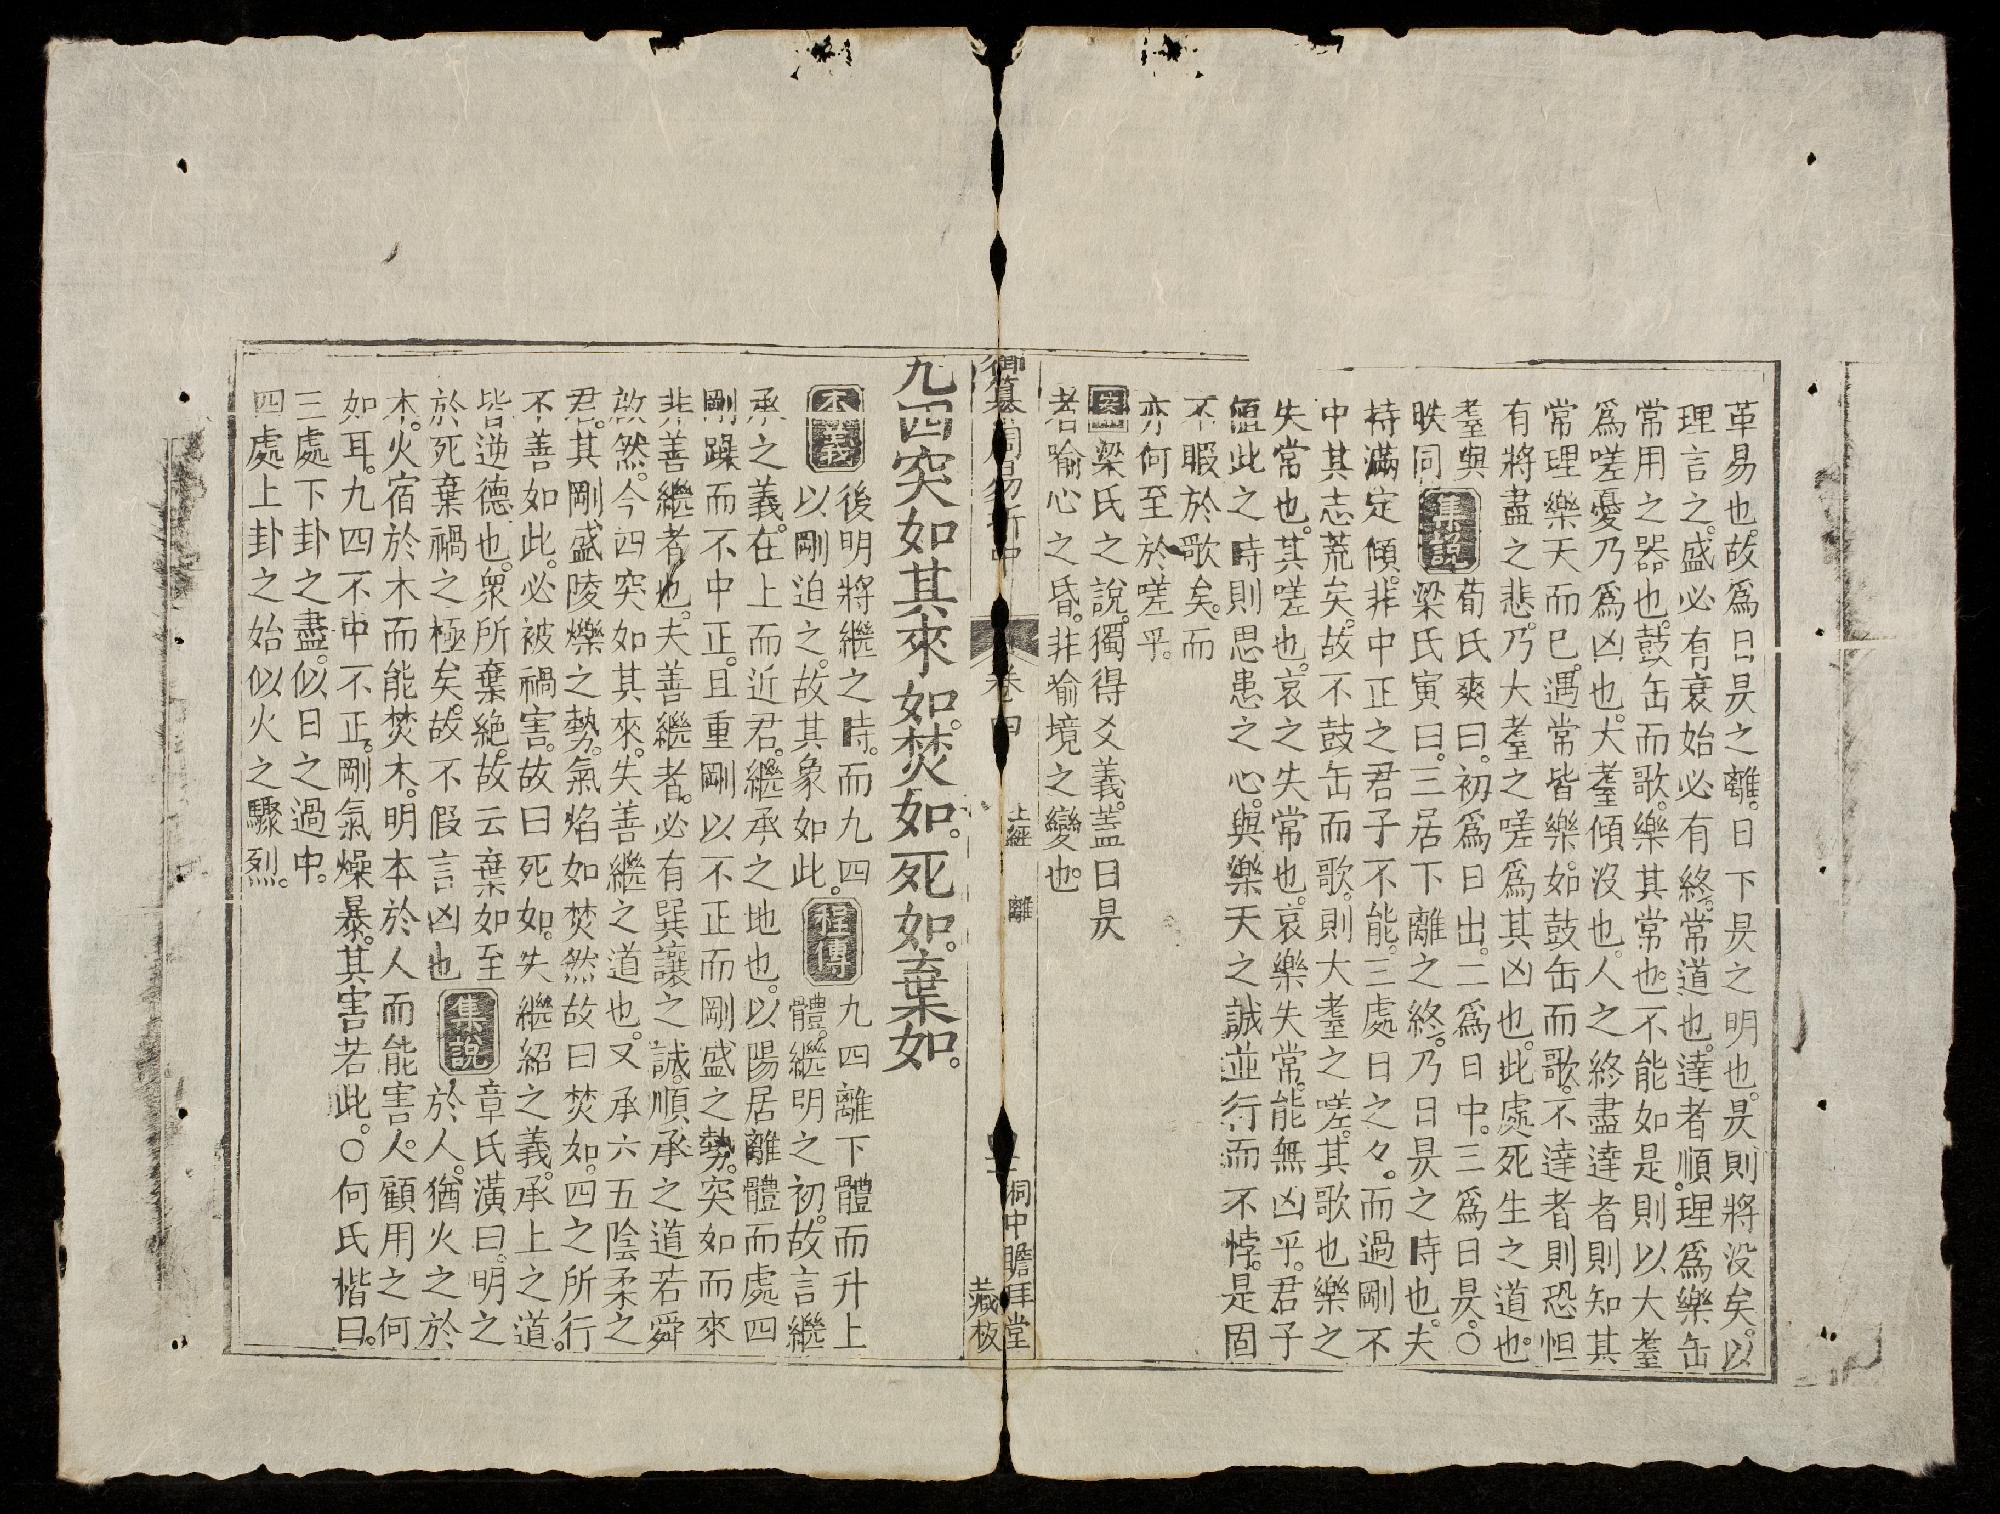 革易也。故爲日昃之離。日下昃之明也。昃則將没矣。以
理言之。盛必有衰始必有終。常道也。達者順理爲樂缶
常用之器也。鼓缶而歌。樂其常也。不能如是則以大耋
爲嗟憂乃爲凶也。大耋傾没也。人之終盡達者則知其
常理樂天而已。遇常皆樂。如鼓缶而歌。不達者則恐怛
有將盡之悲。乃大耋之嗟爲其凶也。此處死生之道也。
耋與
昳同
集說
荀氏爽曰。初爲日出。二爲日中。三爲日昃。〇
梁氏寅曰。三居下離之終。乃日昃之時也。夫
持滿定傾。非中正之君子不能。三處日之夕。而過剛不
中其志荒矣。故不鼓缶而歌。則大耋之嗟。其歌也樂之
失常也。其嗟也。哀之失常也。哀樂失常。能無凶乎。君子
值此之時則思患之心。與樂天之誠並行而不悖。是固
不暇於歌矣。而
亦何至於嗟乎。
案梁氏之說。獨得爻義。蓋日昃
者喻心之昏。非喻境之變也。
御纂周易折中
卷四
上經 離
洞中瞻拜堂
藏板
九四突如其來如。焚如。死如。棄如。
本義
後明將繼之時。而九四
以剛迫之。故其象如此。
程傳
九四離下體而升上
體。繼明之初。故言繼
承之義。在上而近君。繼承之地也。以陽居離體而處四
剛躁而不中正。且重剛以不正而剛盛之勢。突如而來
非善繼者也。夫善繼者。必有巽讓之誠。順承之道若舜
啟然。今四突如其來。失善繼之道也。又承六五陰柔之
君。其剛盛陵爍之勢。氣焰如焚然故曰焚如。四之所行
不善如此。必被禍害。故曰死如。失繼紹之義。承上之道。
皆逆德也。衆所棄絶。故云棄如至
於死棄禍之極矣。故不假言凶也
集說
章氏潢曰。明之
於人。猶火之於
木。火宿於木而能焚木。明本於人而能害人。顧用之何
如耳。九四不中不正。剛氣燥暴。其害若此。〇何氏楷曰。
三處下卦之盡。似日之過中。
四處上卦之始似火之驟烈。